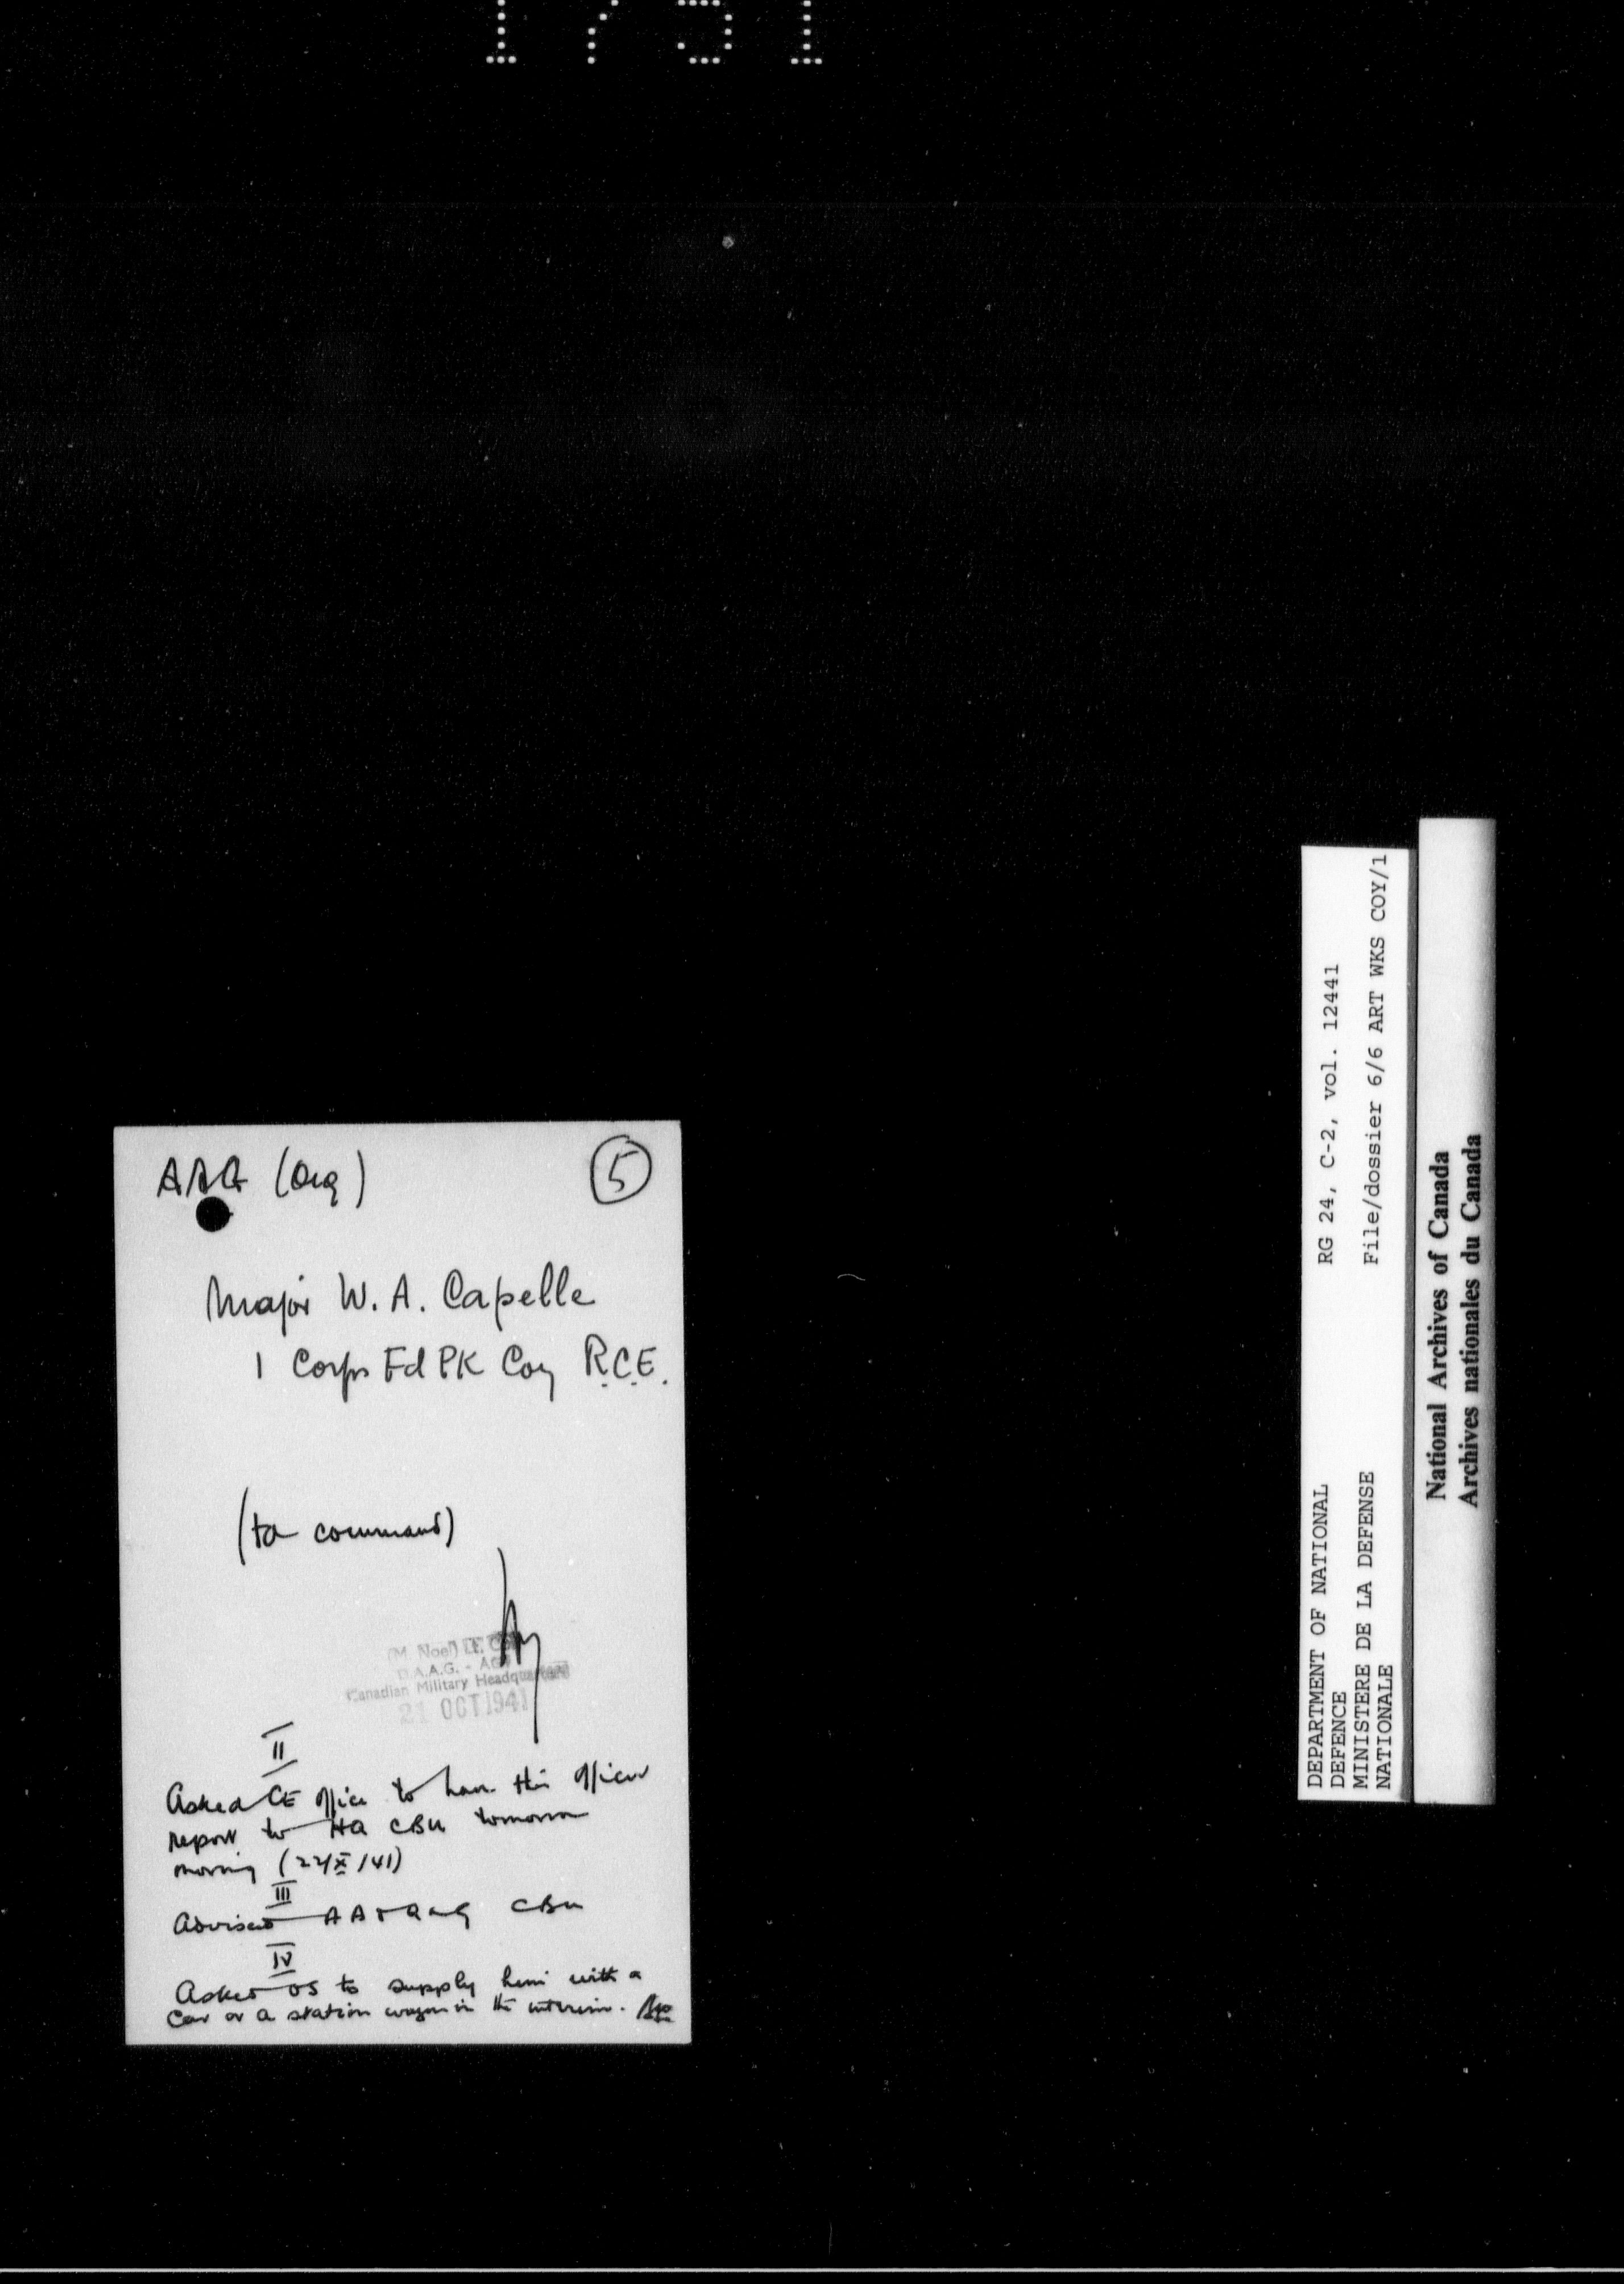 1751
AAG (Org)
5
Major W. A. Capelle
1 Corps Fd PK Coy R.C.E.
(to command)
(M. Noel) Lt. Col
D.A.A.G. - AG
Canadian Military Headquarters
21 OCT 1941
II
Asked CE office to have this officer
report to HQ CBU tomorrow
morning (22/X/41)
III
Advised AA & QMG CBU
IV
Asked OS to supply him with a
car or a station wagon in the interim.
RG 24, C-2, vol. 12441
File/dossier 6/6 ART WKS COY/1
DEPARTMENT OF NATIONAL
DEFENCE
MINISTERE DE LA DEFENSE
NATIONALE
National Archives of Canada
Archives nationales du Canada